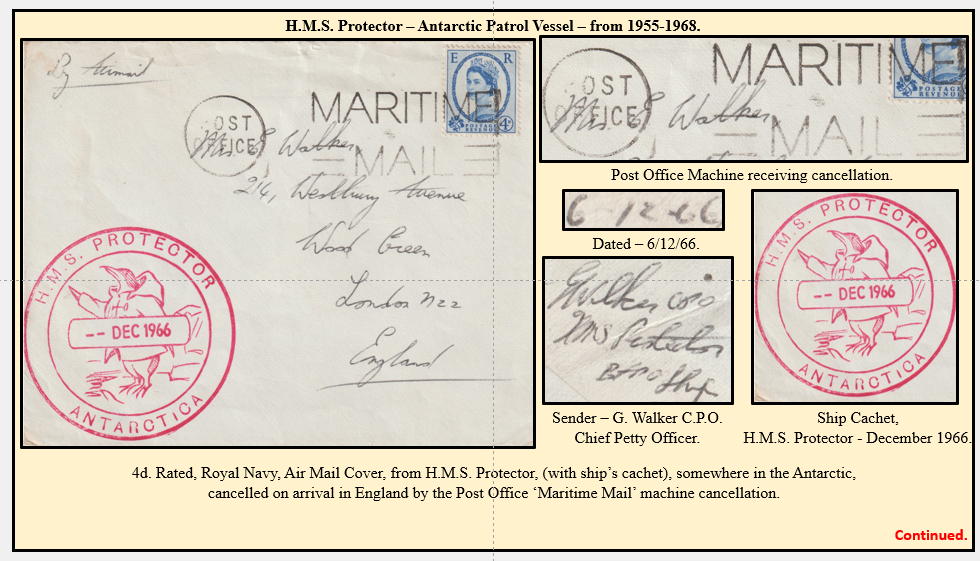 H.M.S. Protector – Antarctic Patrol Vessel – from 1955-1968.
By Airmail
E R
POSTAGE
REVENUE
4D
POST
OFFICE
MARITIME
MAIL
Mrs E Walker
214, Westbury Avenue
Wood Green
London N22
England
H.M.S. PROTECTOR
-- DEC 1966
ANTARCTICA
POST
OFFICE
MARITIME
MAIL
Mrs E Walker
POSTAGE
REVENUE
Post Office Machine receiving cancellation.
6-12-66
Dated – 6/12/66.
GWalker
HMS Protector
BFPO Ship
Sender – G. Walker C.P.O.
Chief Petty Officer.
H.M.S. PROTECTOR
-- DEC 1966
ANTARCTICA
Ship Cachet,
H.M.S. Protector - December 1966.
4d. Rated, Royal Navy, Air Mail Cover, from H.M.S. Protector, (with ship's cachet), somewhere in the Antarctic,
cancelled on arrival in England by the Post Office 'Maritime Mail' machine cancellation.
Continued.